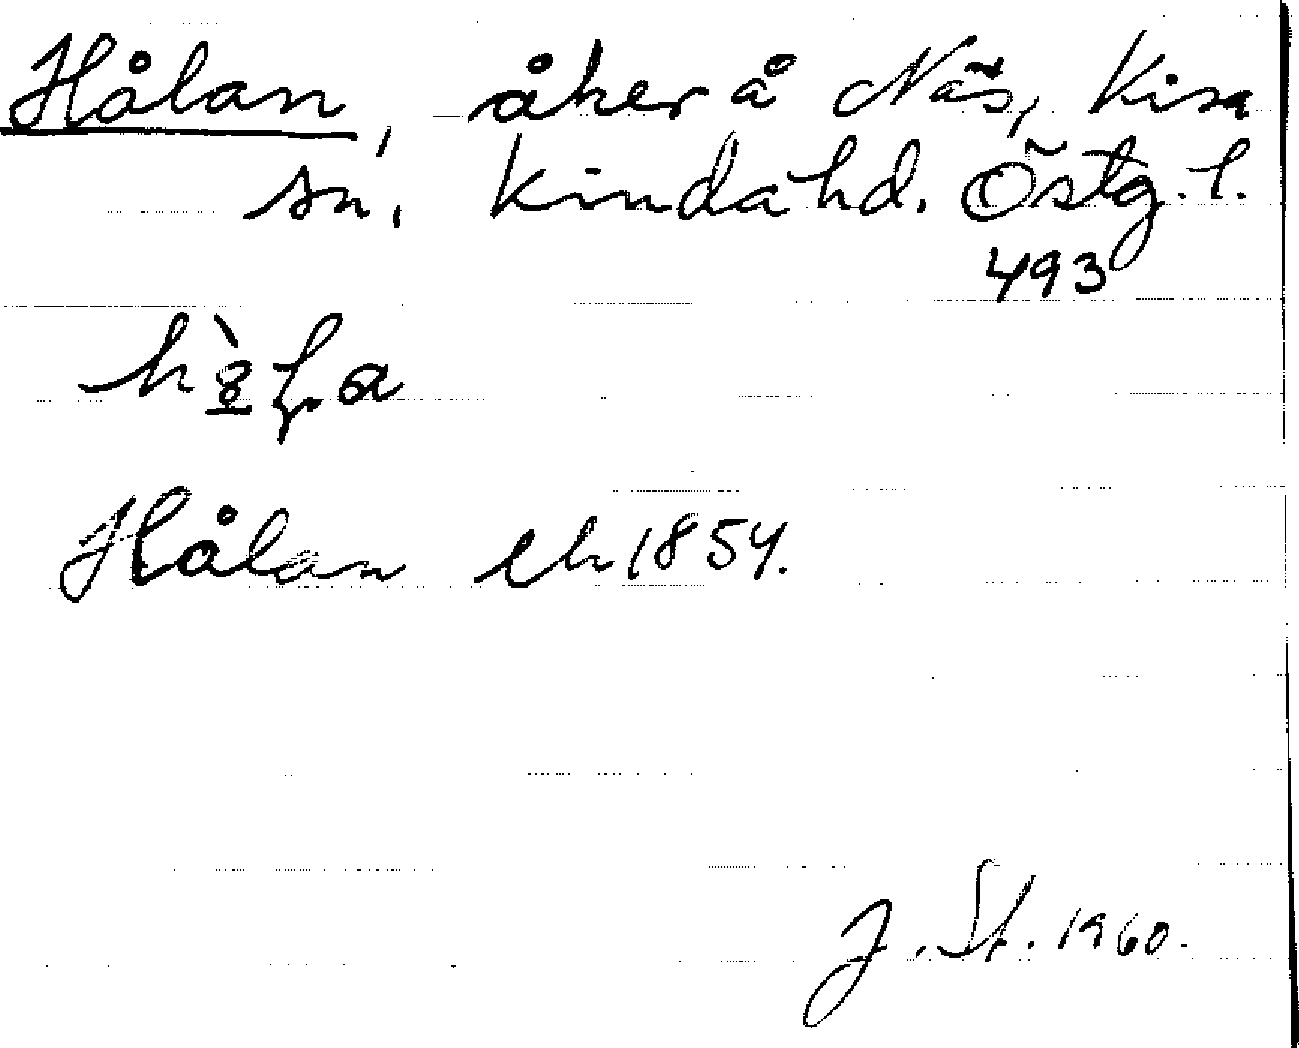 Hålan, åker å Näs, Kisa
sn. Kinda hd. Östg. l.
493
Hålan eh 1854.
J. St. 1960.